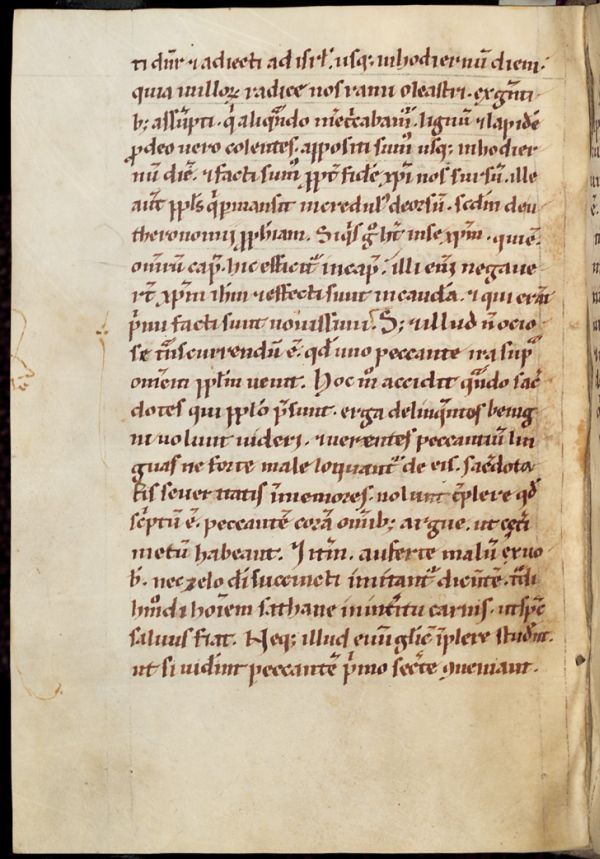 ti dn̄r ⁊ adiecti ad isrl̄. usq; in hodiernū diem.
quia in illoꝝ radice nos rami oleastri. ex gēti
b; assūpti. q̄ aliqn̄do m̄ cābam̄. lignū ⁊ lapidē
ꝓ deo uero colentes. appositi sum᷒ usq; in hodier
nū diē. ⁊ facti sum᷒ ꝓpt̄ fidē xp̄i nos sursū. ille
aūt ppl̄s q̄ pmansit incredul᷒ deorsū. scdm̄ deu
theronomii ꝓph̄iam. Siq̄s g̊ ht̄ in se xp̄m. qui ē
omniū cap̄. hic efficit᷑ in cap̄. illi eni negaue
rt̄ xp̄m ih̄m ⁊ effecti sunt in caudā. ⁊ qui erāt
p̄mi facti sunt nouissimi. S; ⁊ illud n̄ ocio
se tn̄scurrendū ē. qd̄ uno peccante ira sup̄
omnem ppl̄m uenit. Hoc m̊ accidit qn̄do sac̄
dotes qui ppl̄o p̄sunt. erga delinq̄ntes benig
ni uolunt uideri. ⁊ uerentes peccantiū lin
guas ne forte male loquant᷑ de eis. sac̄dota
lis seueritatis īmemores. nolunt īplere qd̄
sc̄ptū ē. peccantē corā omnib; argue. ut cet̄i
metū habeant. Itm̄. auferte malū ex uo
b̄. nec zelo dī succincti imitant᷑ dicntē. t̄di
hmōdi hoīem sathane in int̄itu carnis. ut spc̄
saluus fiat. Neq; illud euūglic̄ īplere studn̄t.
ut si uidīnt peccantē p̄mo sec̄te ꝯueniant.